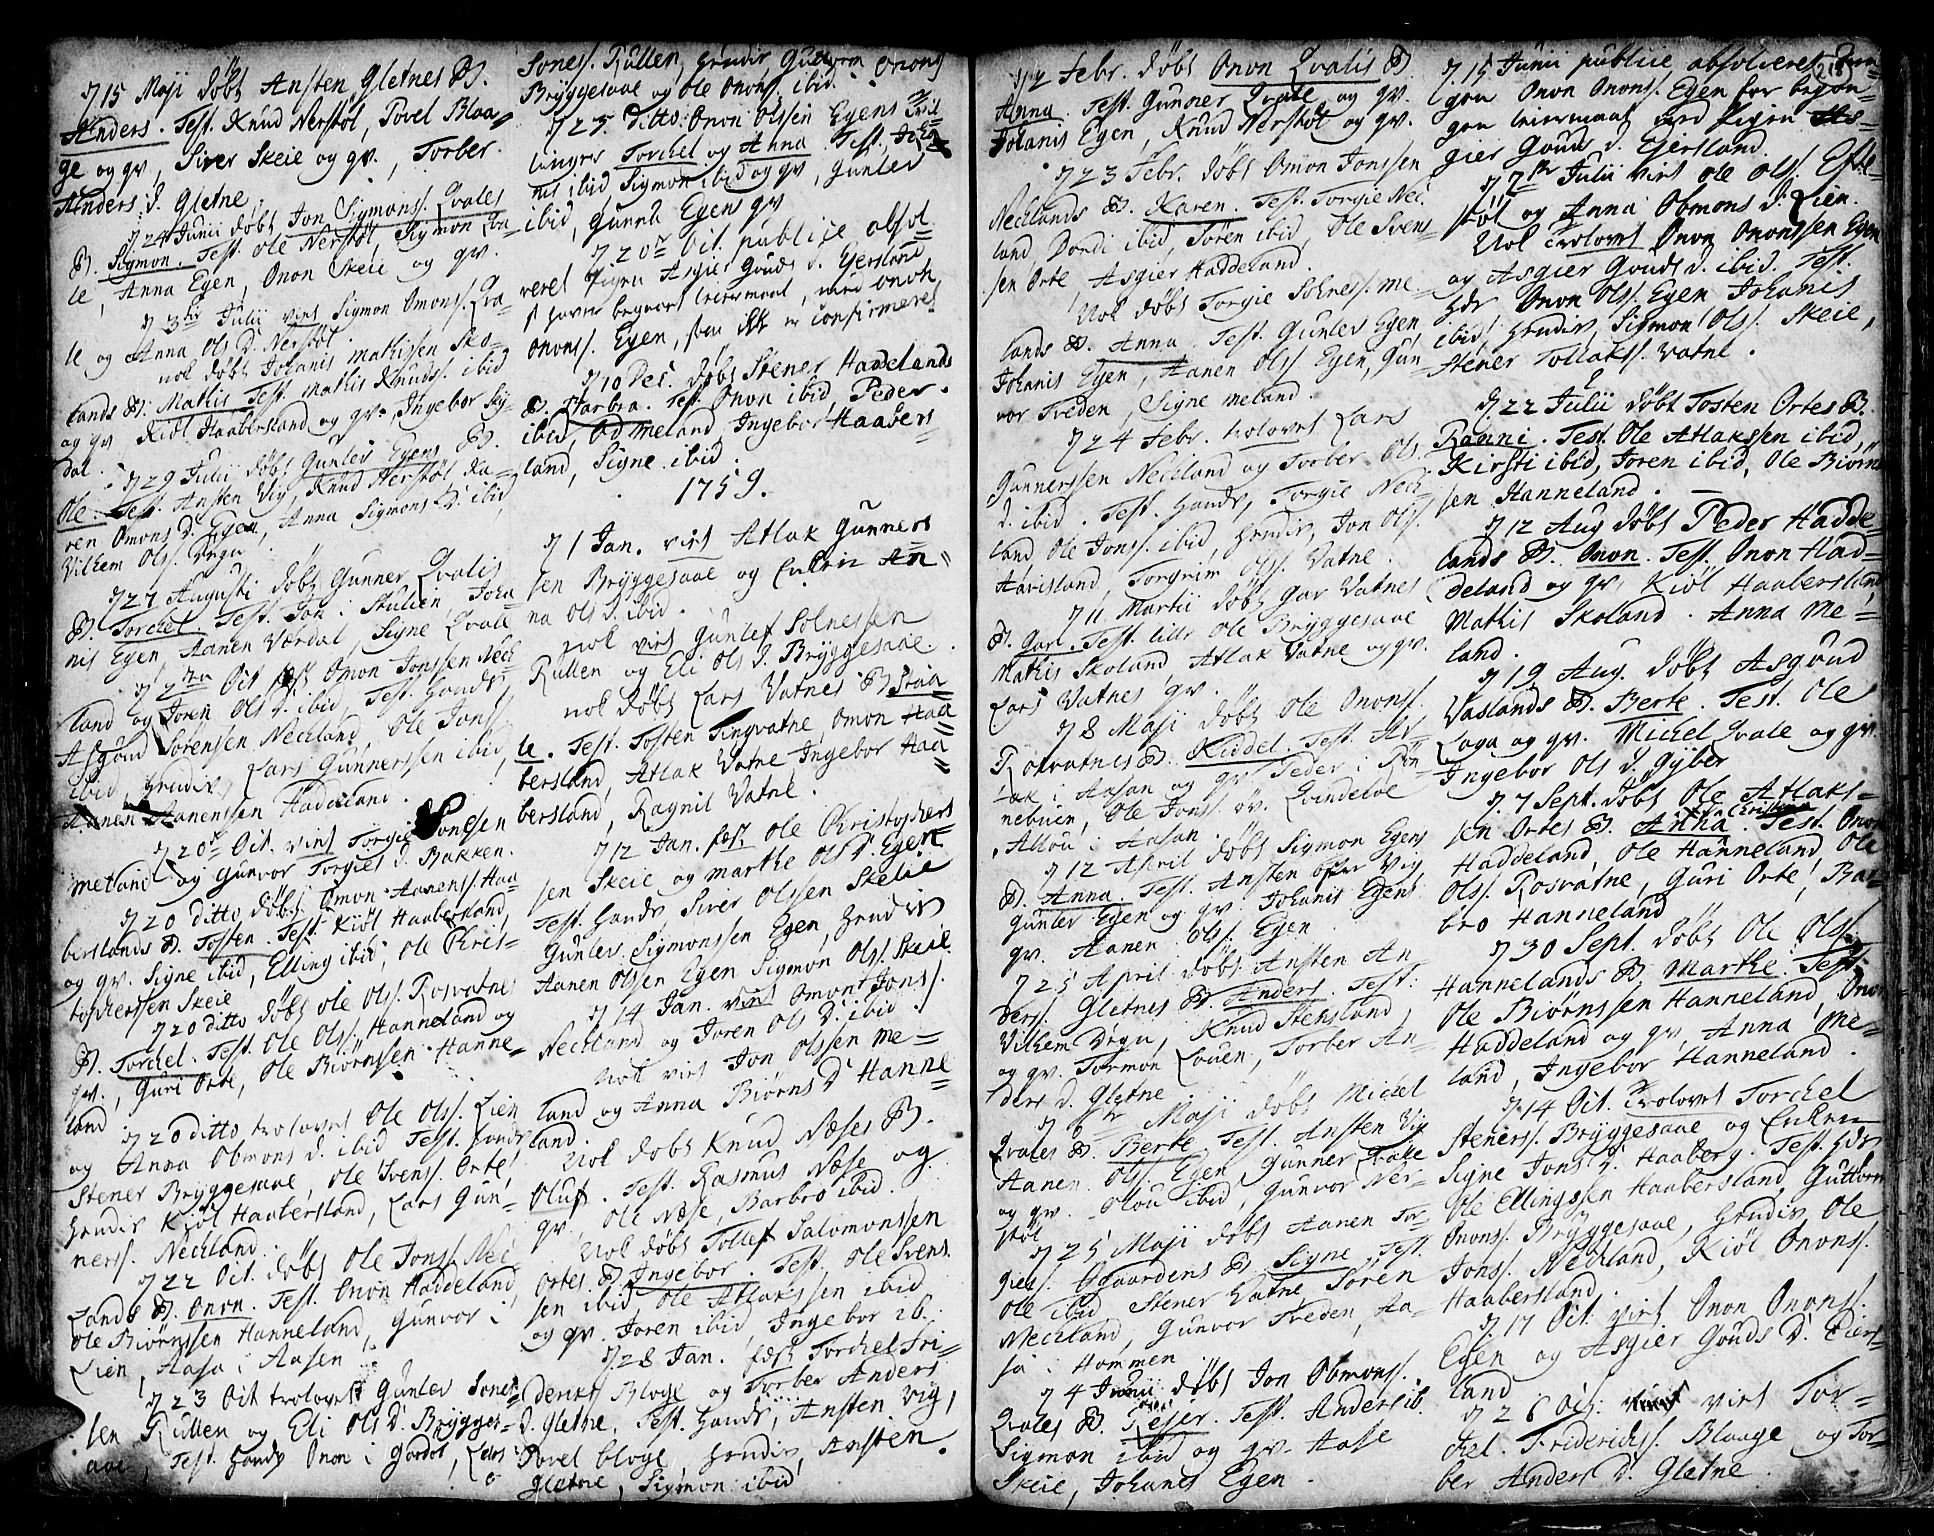 D 15 Maji døbt Ansten Gletnes B.
Anders. Test. Knud Nerstøl, Povel Blaa-
ge og qv, Siver Skeie og qv., Torber
Anders D. Gletne
D 24 Junii døbt Jon Sigmonss. Qvales
B. Sigmon. Test. Ole Nerstøl, Sigmon Qva-
le, Anna Egen, Onon Skeie og qv.
D 3die Julii viet Sigmon Omonss. Qva-
le og Anna Ols D. Nerstøl.
nok døbt Johanis Mathissen Sko-
lands B. Mathis Test. Mathis Knudss. ibid
og qv Kiøl Haabersland og qv., Ingebor Sky-
dal.
D 29 Julii døbt Gunlev Egens B.
Ole. Test. Ansten Vig, Knud Nerstøl, Ka-
ren Omons D. Egen, Anna Sigmons D. ibid,
Vilhem Olss. Degn.
D 27 Augusti døbt Gunner Qvalis
B. Torchel. Test. Jon i Stulien, Joha-
nis Egen, Aanen Værdal, Signe Qvale
D 2den Oct. fæst Omon Jonssen Neck-
land og Joren Ols D. ibid, Test. Hands
Asgoud Sørensen Neckland, Ole Jonss.
ibid, hendis, Lars Gunnerssen ibid,
Aanen Aanenssen Haddeland.
D 20de Oct. viet Torgie Sonesen
Meland og Gunvor Torgies D. Bakken.
D 20 ditto døbt Omon Aanenss. Haa-
berslands B. Tosten. Test. Kiøl Haabersland,
og qv. Signe ibid, Elling ibid, Ole Chris-
tophersen Skeie
D 20 ditto døbt Ole Olss. Rosvatnes
B. Torchel. Test. Ole Olss. Hanneland og
qv., Guri Orte, Ole Biørnssen Hanne-
land
D 20 ditto trolovet Ole Olss. Lien
og Anna Obmons D. ibid Test. hands
Stener Bryggesaae, Ole Svenss. Orte,
hendis Kiøl Haabersland, Lars Gun-
nerss. Neckland.
D 22 Oct. døbt Ole Jonss. Nec-
lands B. Onon. Test. Onon Haddeland,
Ole Biørnssen Hanneland, Gunvor i
Lien, Aasa i Aasen
D 23 Oct trolovet Gunlev Sones-
sen Rullen og Eli Ols D. Brygges-
aae, Test. Hands Onon i Gordøl, Lars
Soness. Rullen, hendis Guttorm Onons
Bryggesaae og Ole Ononss. ibid.
D 25 Ditto Onon Olssen Egens Tvil-
linger Torchel og Anna Test. Joha-
nis ibid Sigmon ibid og qv, Gunlev
ibid, Gunild Egens qv
D 20de Oct. publice absol-
veret Pigen Asgier Gouds D. Ejersland
s haver begaaet leiermaal, med Onon
Ononss. Egen, som ikke er confirmeret
D 10 Dec. døbt Stener Haddelands
B. Barbra. Test. Onon ibid, Peder
ibid, Od Meland Ingebor Haabers-
land, Signe ibid.
1759.
D 1 Jan. viet Atlak Gunners
sen Bryggesaae og Enken An-
na Ols D. ibid.
nok viet Gunlef Solnessen
Rullen og Eli Ols D. Bryggesaae.
nok døbt Lars Vatnes B. Traa-
le. Test. Tosten Tingvatne, Omon Haa-
bersland, Atlak Vatne Ingebor Haa-
bersland, Ragnil Vatne.
D 12 Jan. fæst Ole Christophers
sen Skeie og Marthe Ols D. Egen
Test. hands Siver Olssen Skeie
Gunlev Sigmonssen Egen, hendis
Aanen Olssen Egen Sigmon Olss. Skeie.
D 14 Jan. viet Omon Jonss.
Neckland og Joren Ols D. ibid.
Nok viet Jon Olssen Me-
land og Anna Biørns D. Hanne-
land.
Nok døbt Knud Næses B.
Oluf. Test. Rasmus Næse og
qv. Ole Næse, Barbro ibid.
Nok døbt Tollef Salomonssen
Ortes B. Ingebor. Test. Ole Svens
sen ibid, Ole Atlakssen ibid
og qv. Joren ibid, Ingebor ib.
D 28 Jan. fæst Torchel Fri-
derichs Bloge og Torber Anders
D. Gletne, Test. hands, Ansten Vig,
Povel Bloge, hendis, Ansten
Gletne, Sigmon ibid
D 2 Febr. døbt Onon Qvalis B.
Anna. Test. Gunner Qvale og qv.
Johanis Egen, Knud Nerstøl og qv.
D 23 Febr. døbt Omon Jonssen
Necklands B. Karen. Test. Torgie Nec-
land, Dordi ibid, Søren ibid, Ole Svens-
sen Orte, Asgier Haddeland.
Nok døbt Torgie Solness. Me-
lands B. Anna. Test. Gunlev Egen,
Johanis Egen, Aanen Olss Egen, Gun
vor Treden, Signe Meland.
D 24 Febr. trolovet Lars
Gunnerssen Neckland og Torber Ols
D. ibid. Test. Hands, Torgie Neck-
land, Ole Jonss. ibid, hendis, Jon Olss.
Harisland, Torgrim Olss. Vatne.
D 11 Martii døbt Gar Vatnes
B. Gurl. Test. lille Ole Bryggesaae
Mathis Skoland Atlak Vatne og qv.
Lars Vatnes qv.
D 8 Maji døbt Ole Ononss.
Rosvatnes B. Kiddel. Test. At-
lak i Aasan og qv, Peder i Røn
nebuen, Ole Jonss. øv. Qvindelov
, Allou i Aasan.
D 12 April døbt Sigmon Egens
B. Anna. Test. Ansten øfre Vig
Gunlev Egen og qv. Johanis Egens
qv. Aanen Olss. Egen
D 25 April døbt Ansten An-
derss. Gletnes B. Anders. Test:
Vilhem Degn, Knud Stensland,
og qv. Tormon Louen, Torber An-
ders D. Gletne
D 6te Maji døbt Michel
Qvales B. Berte Test. Ansten Vig
Aanen Olss. Egen, Gunner Qvale
og qv. Olou ibid, Gunvor Ner-
støl
D 25 Maji døbt Aanen Tor-
giess. Ggaardens B. Signe. Test
Ole ibid Stener Vatne, Søren
Neckland, Gunvor Treden, Aa-
sa i Hommen
D 4 Junii døbt Jon Obmonss.
Qvales B. Tejer. Test. Anders ib.
Sigmon ibid og qv. Aase
Skeie, Johanis Egen.
218
D 15 Junii publice absolveret Dren-
gen Onon Ononss. Egen for began-
gen leiermaal med Pigen As-
gier Gouds D. Ejersland.
D 7de Julii viet Ole Olss. Efte-
støl og Anna Obmons D. Lien.
Nok Trolovet Onon Ononssen Egen
og Asgier Gouds D. ibid. Test.
hds Onon Olss. Egen Johanis
ibid, hendis, Sigmon Olss. Skeie,
Stener Tollakss. Vatne.
D. 22 Julii døbt Tosten Ortes B.
Ranni. Test. Ole Atlakssen ibid,
Kirsti ibid, Joren ibid, Ole Biørns
sen Hanneland.
D 12 Aug døbt Peder Hadde-
lands B. Onon. Test. Onon Had-
deland og qv, Kiøl Haabersland
Mathis Skoland. Anna Me-
land.
D 19 Aug. døbt Asgoud
Vaslands B. Berte. Test. Ole
Loga og qv. Michel Qvale og qv.
Ingebor Ols D. Gyber
D. 7 Sept. døbt Ole Atlaks-
sen Ortes B. Anna Christina. Test. Onon
Haddeland, Ole Hanneland, Ole
Olss. Rosvatne, Guri Orte, Bar-
bro Hanneland
D 30 Sept. døbt Ole Olss.
Hannelands B. Marthe. Test.
Ole Biørnssen Hanneland, Onon
Haddeland og qv, Anna Me-
land, Ingebor Hanneland.
D 14 Oct. Trolovet Torchel
Steners. Bryggesaae og Enken
Signe Jons D. Haaberg. Test. hds
Ole Ellingssen Haabersland, Guttorm
Ononss. Bryggesaae, hendis, Ole
Jonss. Neckland, Kiøl Ononss.
Haabersland.
D 17 Oct. viet Onon Ononss.
Egen og Asgier Gouds D. Eiers-
land
D 26 Oct. viet Tor-
chel. Friderichss. Blaage og Tor-
ber Anders D. Gletne.